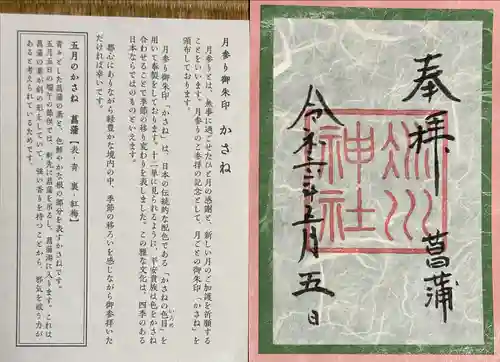 月参り御朱印 かさね
月参りとは、無事に過ごせたひと月の感謝と、新しい月のご加護を祈願する
ことをいいます。月参りのご参拝の記念として、月ごとの御朱印「かさね」を
頒布しております。
月参り御朱印「かさね」は、日本の伝統的な配色である「かさねの色目」を
いろめ
用いて奉製をしております。十二単に見られるように、平安貴族は色をかさね
合わせることで季節の移り変わりを表しました。この雅な文化は、四季のある
日本ならではのものといえます。
都心にありながら軽豊かな境内の中、季節の移ろいを感じながら御参拝いた
だければ幸いです。
五月のかさね 菖蒲【表・青 裏・紅梅】
青々とした菖蒲の葉と、色鮮やかな根の部分を表すかさねです。
五月五日の端午の節供では、軒先に菖蒲を吊るし、菖蒲湯に入ります。これは
菖蒲の葉が剣の形をしていて、強い香りを持つことから、邪気を祓う力が
あると考えられているためです。
奉拝
菖蒲
氷川
神社
令和三年五月五日